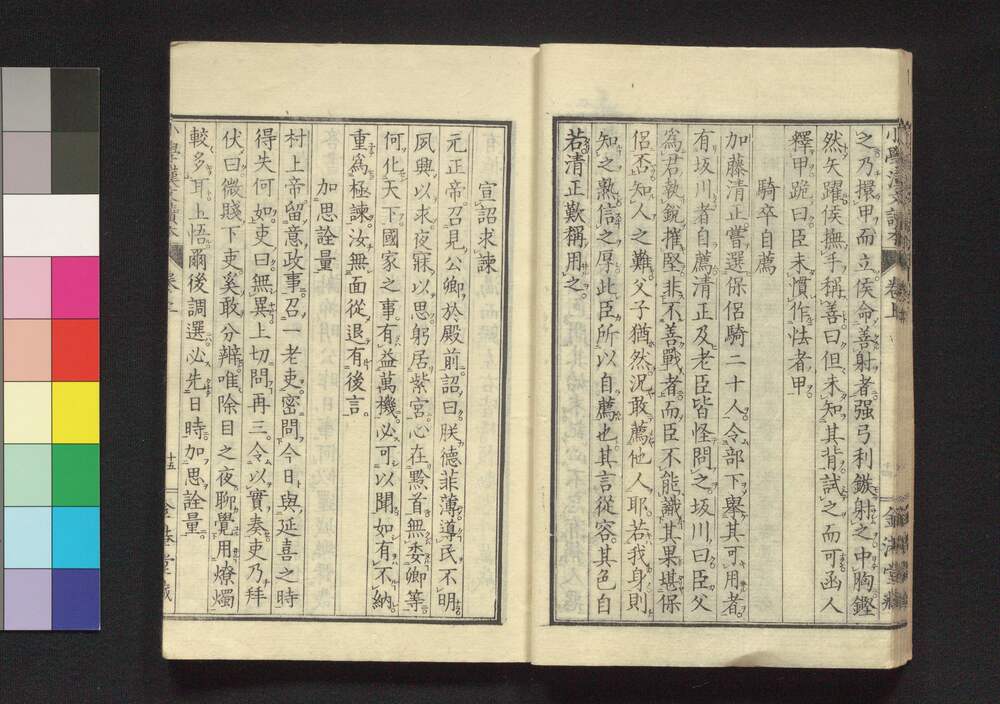 之乃擐甲而立侯命善射者强弓利鏃射之中胸鏗
然矢躍侯撫手稱善曰但未知其背試之而可函人
釋甲跪曰臣未慣作怯者甲
騎卒自薦
加藤清正嘗選保侶騎二十人令部下舉其可用者
有坂川者自薦清正及老臣皆怪問之坂川曰臣父
爲君執銳摧堅非不善戰者而臣不能識其果堪保
侶否知人之難父子猶然況敢薦他人耶若我身則
知之熟信之厚此臣所以自薦也其言從容其色自
若清正歎稱用之
宣詔求諫
元正帝召見公卿於殿前詔曰朕德菲薄導民不明
夙興以求夜寐以思躬居紫宮心在黔首無委卿等
何化天下國家之事有益萬機必可以聞如有不納
重爲極諫汝無面從退有後言
加思詮量
村上帝留意政事召一老吏密問今日與延喜之時
得失何如吏曰無異上切問再三令以實奏吏乃拜
伏曰微賤下吏奚敢分辨唯除目之夜聊覺用燎燭
較多耳上悟爾後調選必先日時加思詮量
十五